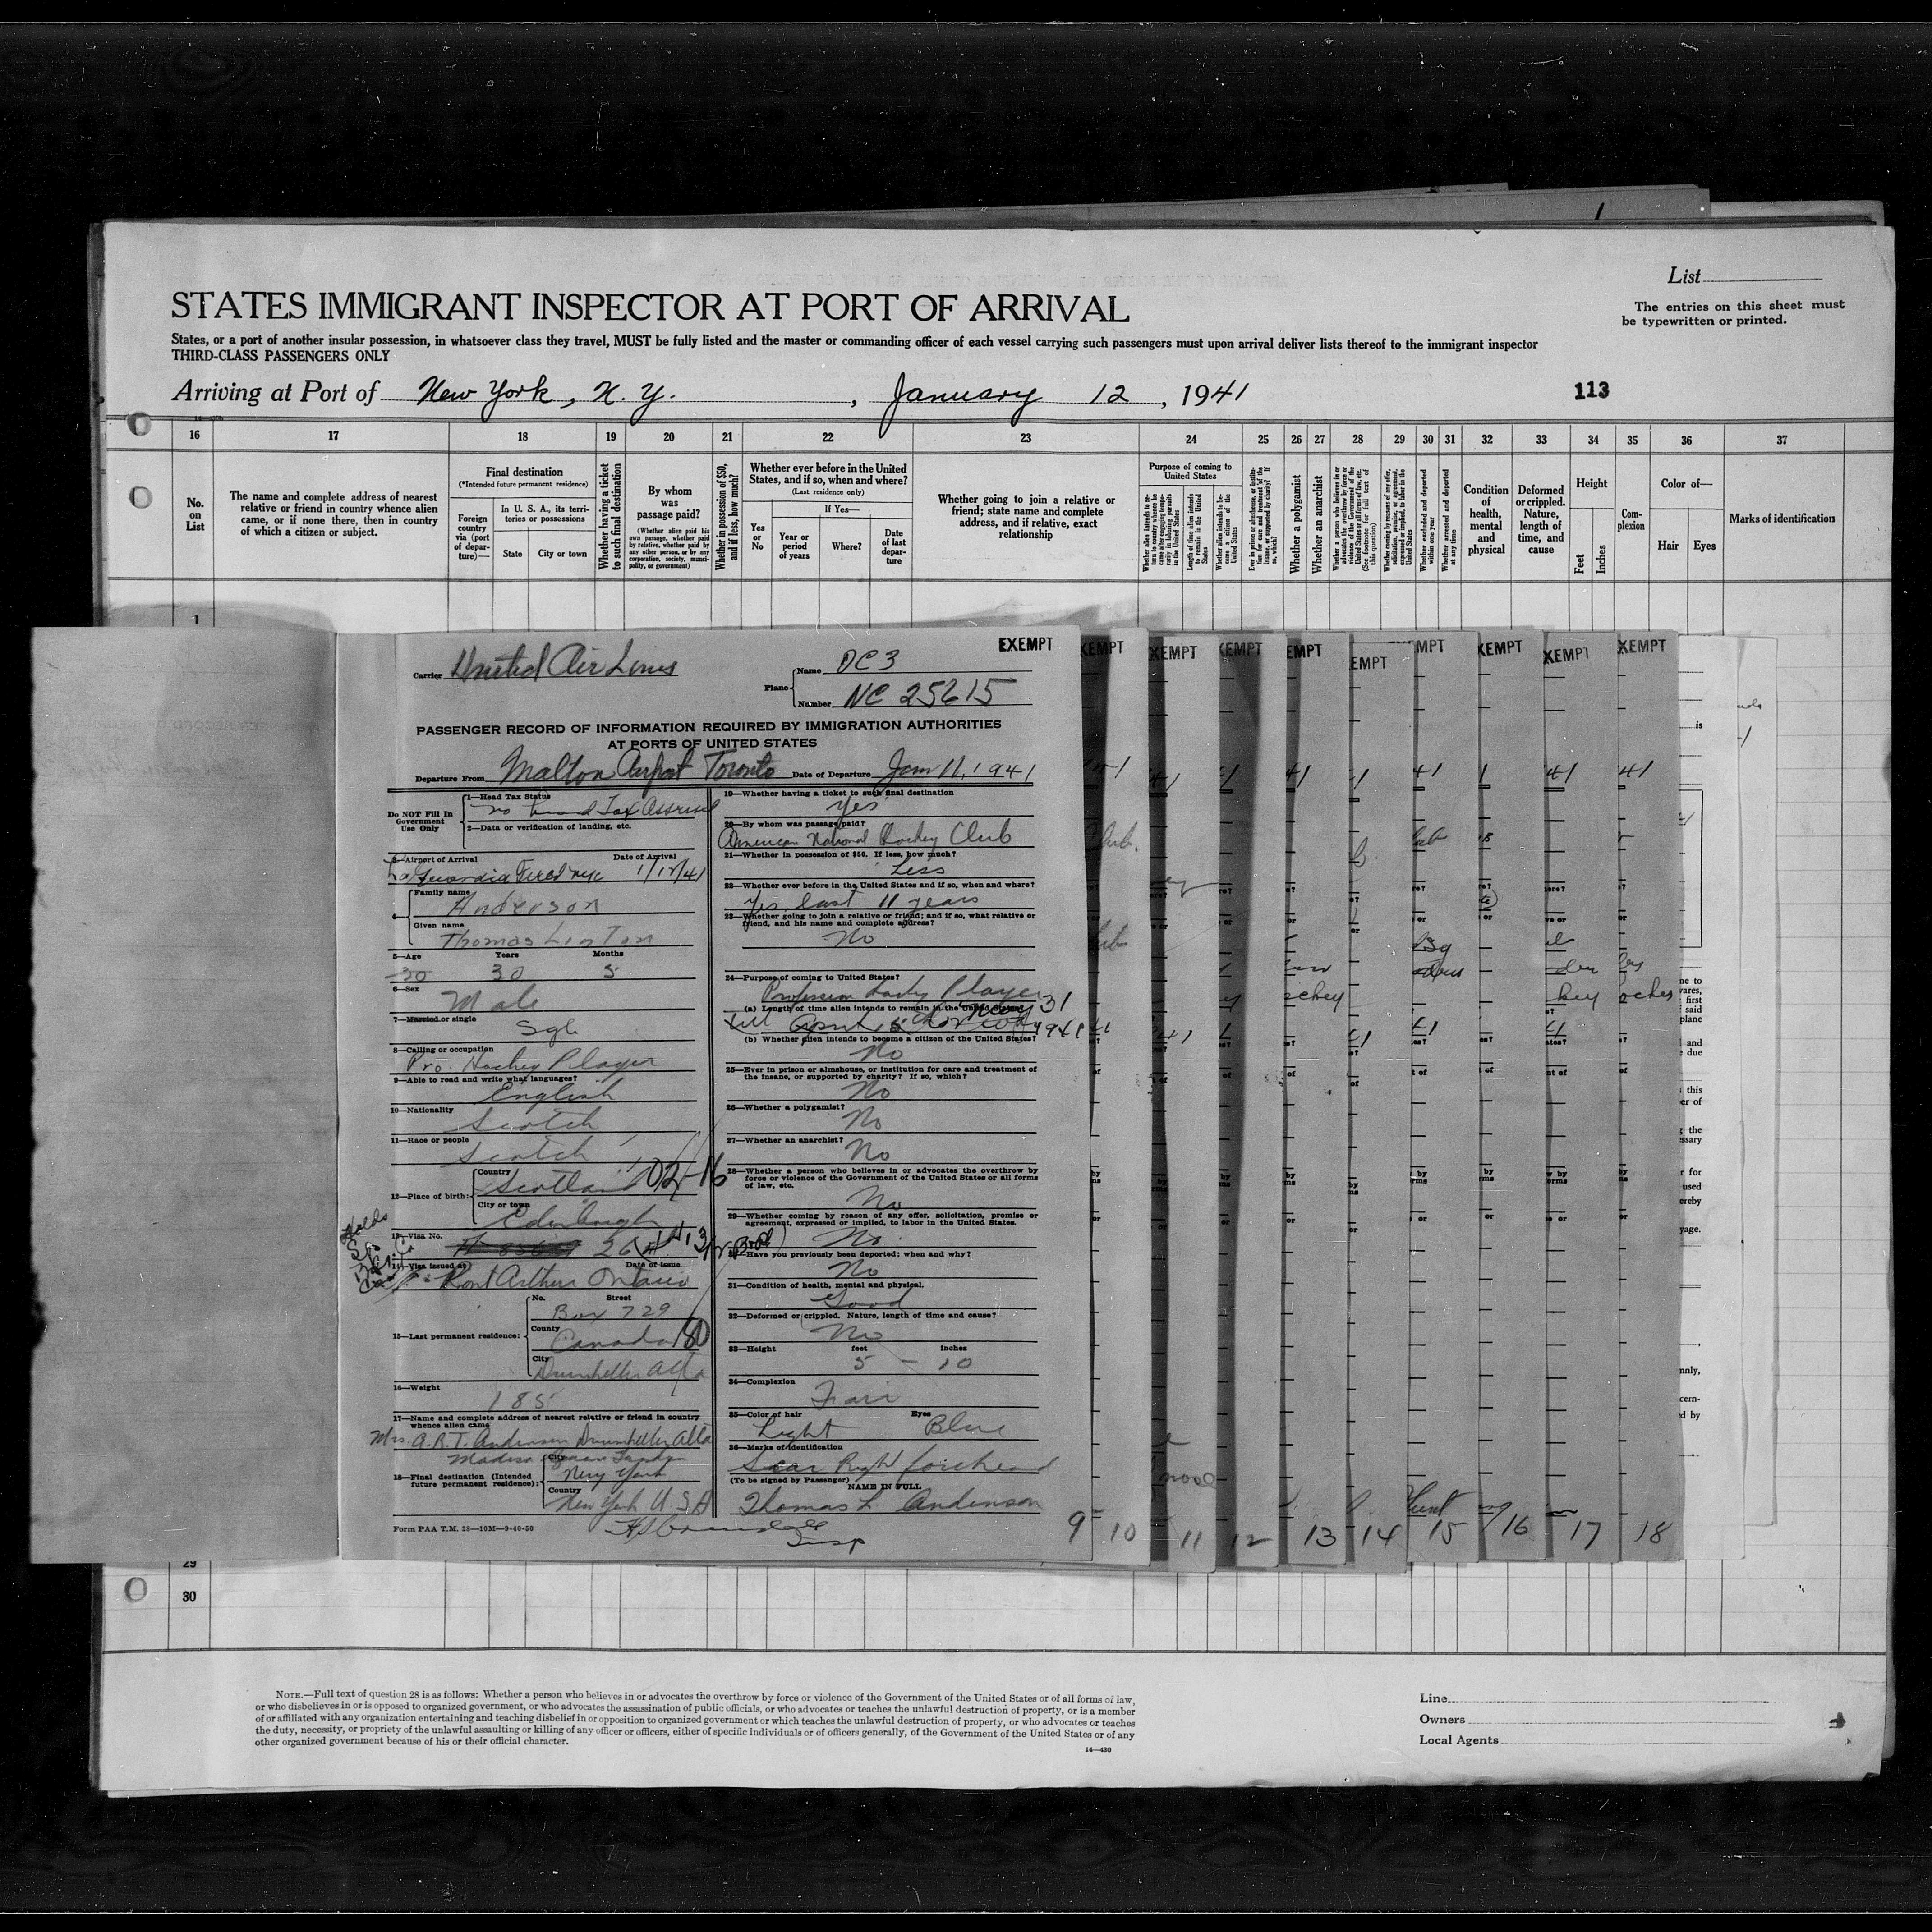 1
List
STATES IMMIGRANT INSPECTOR AT PORT OF ARRIVAL
The entries on this sheet must
be typewritten or printed.
States, or a port of another insular possession, in whatsoever class they travel, MUST be fully listed and the master or commanding officer of each vessel carrying such passengers must upon arrival deliver lists thereof to the immigrant inspector
THIRD-CLASS PASSENGERS ONLY
Arriving at Port of New York, N. Y. , January 12, 1941
113
16 17 18 19 20 21 22 23 24 25 26 27 28 29 30 31 32 33 34 35 36 37
No. on List
The name and complete address of nearest relative or friend in country whence alien came, or if none there, then in country of which a citizen or subject.
Final destination
(*Intended future permanent residence)
Foreign country via (port of departure)—
In U. S. A., its territories or possessions
State
City or town
Whether having a ticket to such final destination
By whom was passage paid?
(Whether alien paid his own passage, whether paid by relative, whether paid by any other person, or by any corporation, society, municipality, or government)
Whether in possession of $50, and if less, how much?
Whether ever before in the United States, and if so, when and where?
(Last residence only)
Yes or No
If Yes—
Year or period of years
Where?
Date of last departure
Whether going to join a relative or friend; state name and complete address, and if relative, exact relationship
Purpose of coming to United States
Length of time alien intends to remain in the United States
Whether alien intends to become a citizen of the United States
Whether a polygamist
Whether an anarchist
Whether excluded and deported within one year
Whether arrested and deported at any time
Condition of health, mental and physical
Deformed or crippled. Nature, length of time, and cause
Height
Feet
Inches
Complexion
Color of—
Hair
Eyes
Marks of identification
1
EXEMPT
Carrier United Air Lines
Plane
Name DC3
Number NC 25615
PASSENGER RECORD OF INFORMATION REQUIRED BY IMMIGRATION AUTHORITIES
AT PORTS OF UNITED STATES
Departure From Malton Airport Toronto Date of Departure Jan 11, 1941
Do NOT Fill In Government Use Only
1—Head Tax Status
no head Tax Assessed
2—Data or verification of landing, etc.
3—Airport of Arrival Date of Arrival
La Guardia Field nyc 1/12/41
4—
Family name
Anderson
Given name
Thomas Linton
5—Age Years Months
30 30 5
6—Sex
Male
7—Married or single
Sgl
8—Calling or occupation
Pro. Hockey Player
9—Able to read and write what languages?
English
10—Nationality
Scotch
11—Race or people
Scotch
12—Place of birth:
Country
Scotland
City or town
Edenburgh
13—Visa No.
14—Visa issued at Date of issue
Port Arthur Ontario
15—Last permanent residence:
No. Street
Box 729
County
Canada
City
Drumheller Alta
16—Weight
185
17—Name and complete address of nearest relative or friend in country whence alien came
Mrs. A.R.T. Anderson Drumheller Alta
18—Final destination (Intended future permanent residence):
City
New York
Country
New York U.S.A
Form PAA T.M. 28—10M—9-40-50
Insp
19—Whether having a ticket to such final destination
Yes
20—By whom was passage paid?
American National Hockey Club
21—Whether in possession of $50. If less, how much?
Less
22—Whether ever before in the United States and if so, when and where?
Yes, last 11 years
23—Whether going to join a relative or friend; and if so, what relative or friend, and his name and complete address?
No
24—Purpose of coming to United States?
Profession hocky Player
(a) Length of time alien intends to remain in the United States?
till April
(b) Whether alien intends to become a citizen of the United States?
No
25—Ever in prison or almshouse, or institution for care and treatment of the insane, or supported by charity? If so, which?
No
26—Whether a polygamist?
No
27—Whether an anarchist?
No
28—Whether a person who believes in or advocates the overthrow by force or violence of the Government of the United States or all forms of law, etc.
No
29—Whether coming by reason of any offer, solicitation, promise or agreement, expressed or implied, to labor in the United States.
No.
30—Have you previously been deported; when and why?
No
31—Condition of health, mental and physical.
Good
32—Deformed or crippled. Nature, length of time and cause?
No
33—Height feet inches
5 - 10
34—Complexion
Fair
35—Color of hair Eyes
Light Blue
36—Marks of identification
Scar Right forehead
(To be signed by Passenger)
NAME IN FULL
Thomas L Anderson
9 10 11 12 13 14 15 16 17 18
29
30
NOTE.—Full text of question 28 is as follows: Whether a person who believes in or advocates the overthrow by force or violence of the Government of the United States or of all forms of law,
or who disbelieves in or is opposed to organized government, or who advocates the assassination of public officials, or who advocates or teaches the unlawful destruction of property, or is a member
of or affiliated with any organization entertaining and teaching disbelief in or opposition to organized government or which teaches the unlawful destruction of property, or who advocates or teaches
the duty, necessity, or propriety of the unlawful assaulting or killing of any officer or officers, either of specific individuals or of officers generally, of the Government of the United States or of any
other organized government because of his or their official character.
14—430
Line
Owners
Local Agents